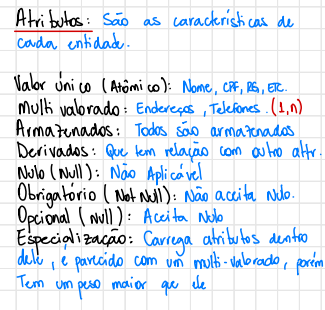 Atributos: São as características de
cada entidade.
Valor único (Atômico): Nome, CPF, RG, ETC.
Multi valorado: Endereços, Telefones. (1,n)
Armazenados: Todos são armazenados
Derivados: Que tem relação com outro attr.
Nulo (Null): Não Aplicável
Obrigatório (Not Null): Não aceita Nulo.
Opcional (Null): Aceita Nulo
Especialização: Carrega atributos dentro
dele, é parecido com um multi-valorado, porém
Tem um peso maior que ele